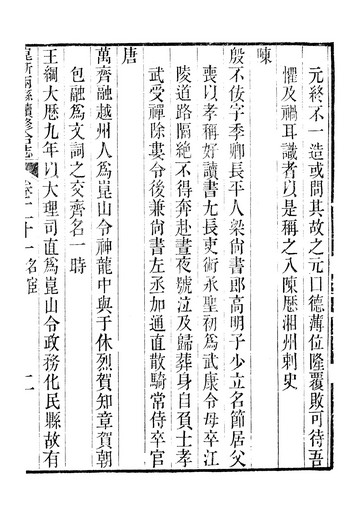 元終不一造或問其故之元曰德薄位隆覆敗可待吾
懼及禍耳識者以是稱之入陳歷湘州刺史
陳
殷不佞字季卿長平人梁尚書郎高明子少立名節居父
喪以孝稱好讀書尢長吏術承聖初爲武康令母卒江
陵道路隔絶不得奔赴晝夜號泣及歸葬身自負土孝
武受禪除婁令後兼尚書左丞加通直散騎常侍卒官
唐
萬齊融越州人爲崑山令神龍中與于休烈賀知章賀朝
包融爲文詞之交齊名一時
王綱大歷九年以大理司直爲崑山令政務化民縣故有
崑新兩縣續修合志 卷二十一 名宦 二